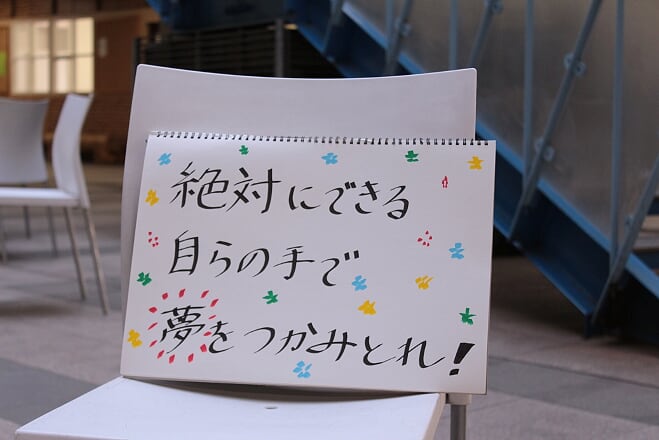 絶対にできる
自らの手で
夢をつかみとれ!